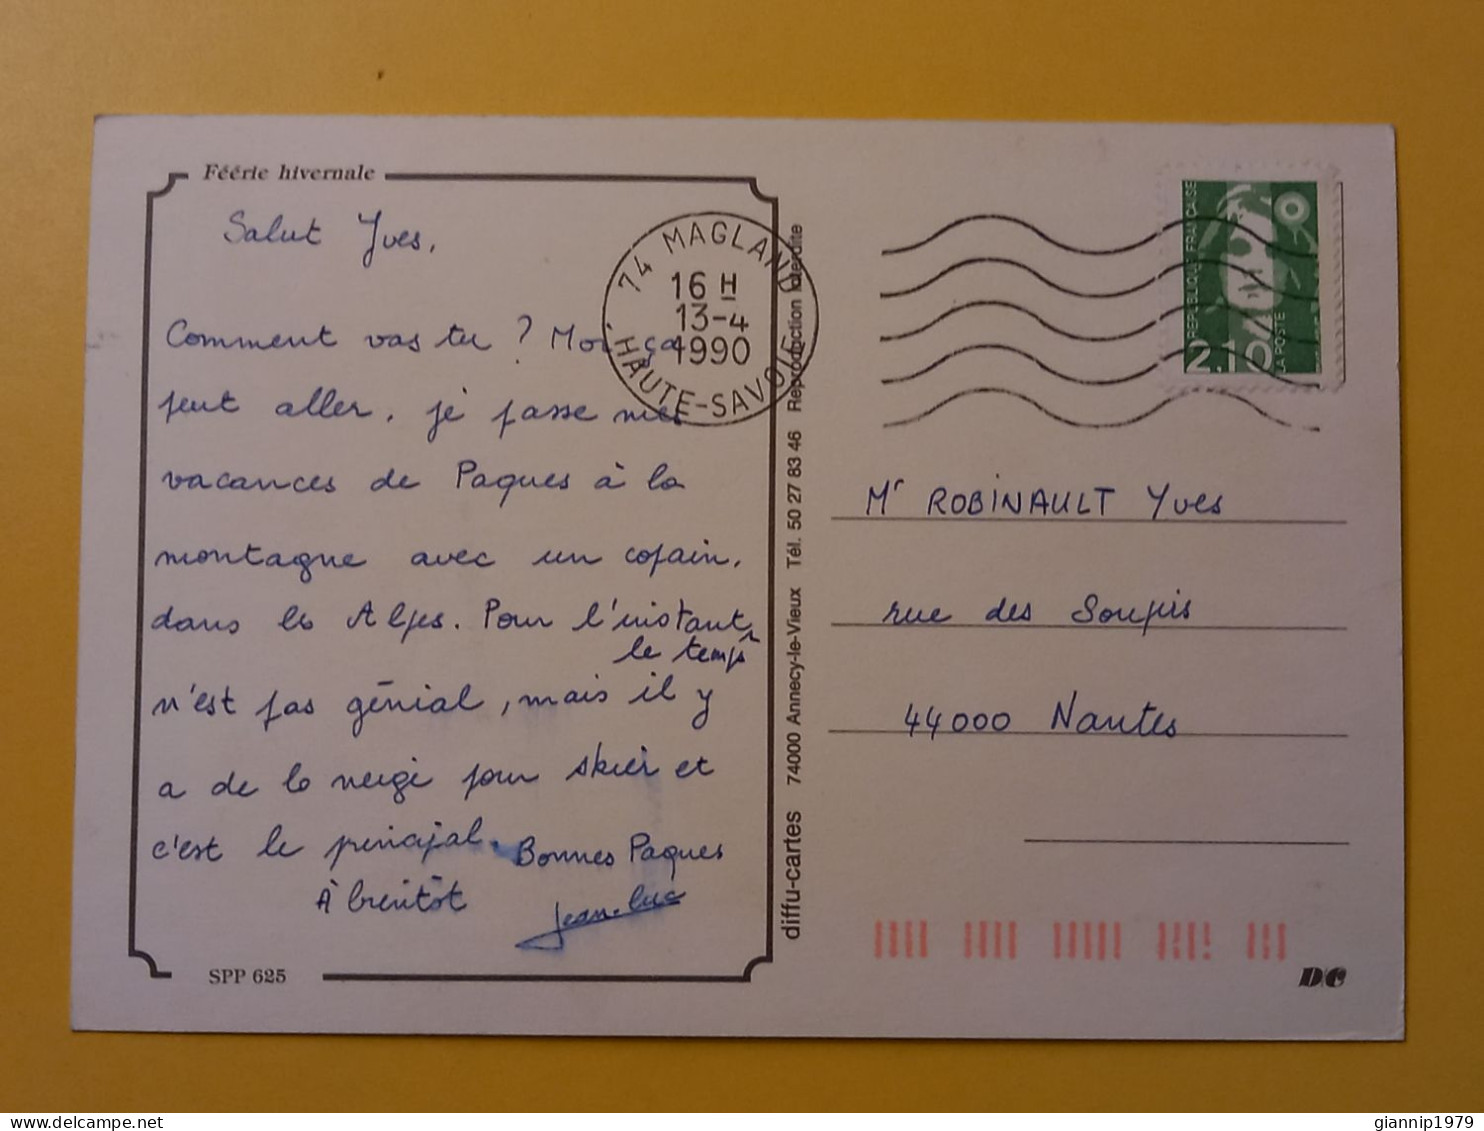 Féérie hivernale
Salut Yves,
Comment vas tu ? Moi ça
peut aller, je passe mes
vacances de Paques à la
montagne avec un copain,
dans les Alpes. Pour l'instant
le temps
n'est pas génial, mais il y
a de la neige pour skier et
c'est le principal. Bonnes Paques
À bientôt
Jean-Luc
SPP 625
74 MAGLAND
16 H
13-4
1990
HAUTE-SAVOIE
diffu-cartes 74000 Annecy-le-Vieux Tél. 50 27 83 46 Reproduction interdite
REPUBLIQUE FRANÇAISE
2,10
LA POSTE
Mr ROBINAULT Yves
rue des Soupirs
44000 Nantes
DC
giannip1979